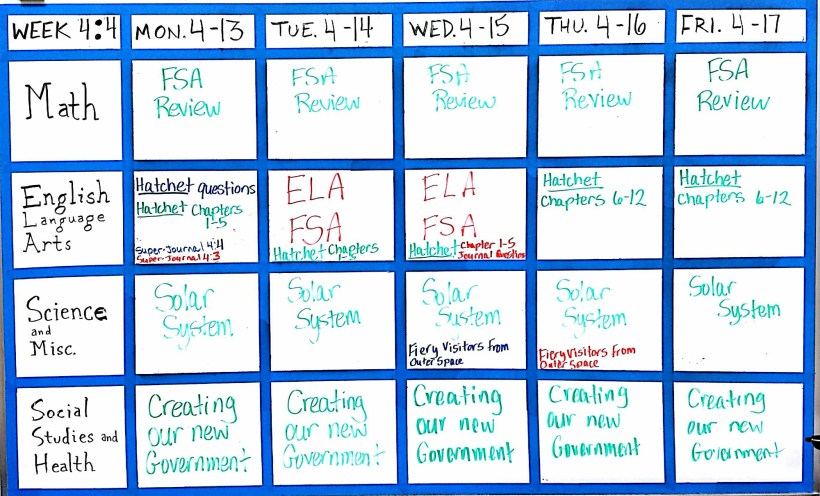 WEEK 4:4
MON. 4-13
TUE. 4-14
WED. 4-15
THU. 4-16
FRI. 4-17
Math
FSA
Review
FSA
Review
FSA
Review
FSA
Review
FSA
Review
English
Language
Arts
Hatchet questions
Hatchet Chapters
1-5
Super-Journal 4:4
Super-Journal 4:3
ELA
FSA
Hatchet Chapters
ELA
FSA
Hatchet Chapter 1-5
Journal Questions
Hatchet
Chapters 6-12
Hatchet
Chapters 6-12
Science
and
Misc.
Solar
System
Solar
System
Solar
System
Fiery Visitors from
Outer Space
Solar
System
Fiery Visitors from
Outer Space
Solar
System
Social
Studies and
Health
Creating
our new
Government
Creating
our new
Government
Creating
our new
Government
Creating
our new
Government
Creating
our new
Government